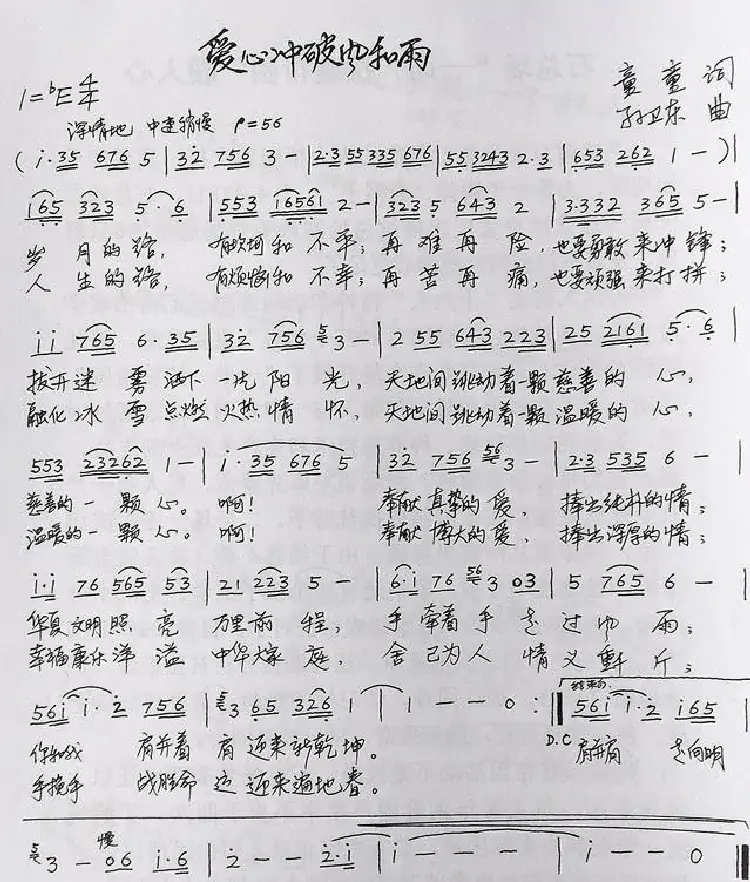 爱心冲破风和雨
1=♭E 4/4
童 童 词
孙卫东 曲
深情地 中速稍慢 ♩=56
(i·35 676 5 | 32 756 3 – | 2·3 55 335 676 | 55 3243 2·3 | 653 262 1 – )|
165 323 5·6 | 553 16561 2 – | 323 5 643 2 | 3·332 365 5 – |
岁 月的路, 有坎坷和 不平; 再 难 再 险, 也要勇敢 来冲 锋;
人 生的路, 有烦恼和 不幸; 再 苦 再 痛, 也要顽强 来打 拼;
i i 765 6·35 | 32 756 3 – | 2 55 643 223 | 25 2161 5·6 |
拨开迷 雾 洒下 一片 阳 光, 天地间跳动着一颗 慈善的 心,
融化冰 雪 点燃 火热 情 怀, 天地间跳动着一颗 温暖的 心,
553 23262 1 – | i·35 676 5 | 32 756 56 3 – | 2·3 535 6 – |
慈善的一 颗 心。 啊! 奉献真挚的 爱, 捧出纯朴的情;
温暖的一 颗 心。 啊! 奉献博大的 爱, 捧出深厚的情;
i·i 76 565 53 | 21 223 5 – | 6·i 76 56 3 03 | 5 765 6 – |
华夏文明照 亮 万里前 程; 手 牵着 手 走 过 风 雨;
幸福康乐洋 溢 中华大家 庭, 舍 己为 人 情 义 千 斤;
56i i·2 756 | 3 65 326 1 | 1 – – 0 :‖ 结束句 56i i·2 i65 |
你和我 肩并着 肩 迎来新乾坤。 D.C 肩并肩 走向明
手挽手 迎来遍地春。
3 – 慢 06 i·6 | 2 – – 2·i | i – – – | i – – 0 ‖